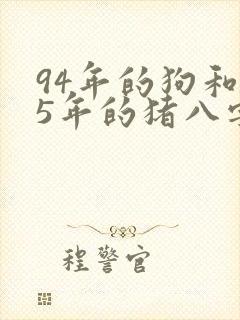 94年的狗和
5年的猪八字
程警官